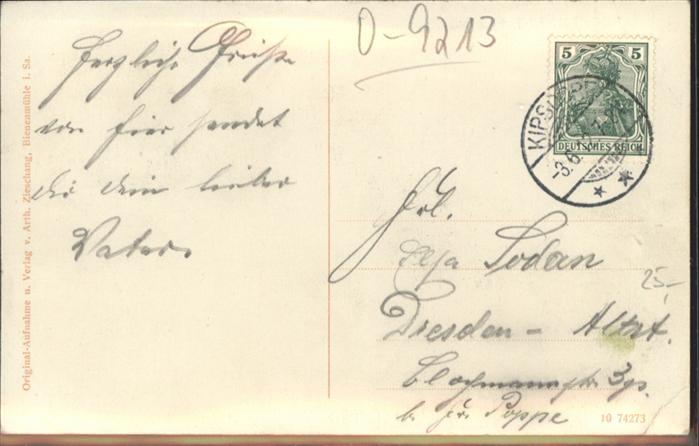 D-9213
Herzliche Grüße
von hier sendet
dir dein lieber
Vater.
5 5
DEUTSCHES REICH
KIPSD
-3.6.
Frl.
Elsa Sodan
Dresden - Altst.
Blochmannstr. 3
b. Poppe
25,-
Original-Aufnahme u. Verlag v. Arth. Zieschang, Bienenmühle i. Sa.
10 74273